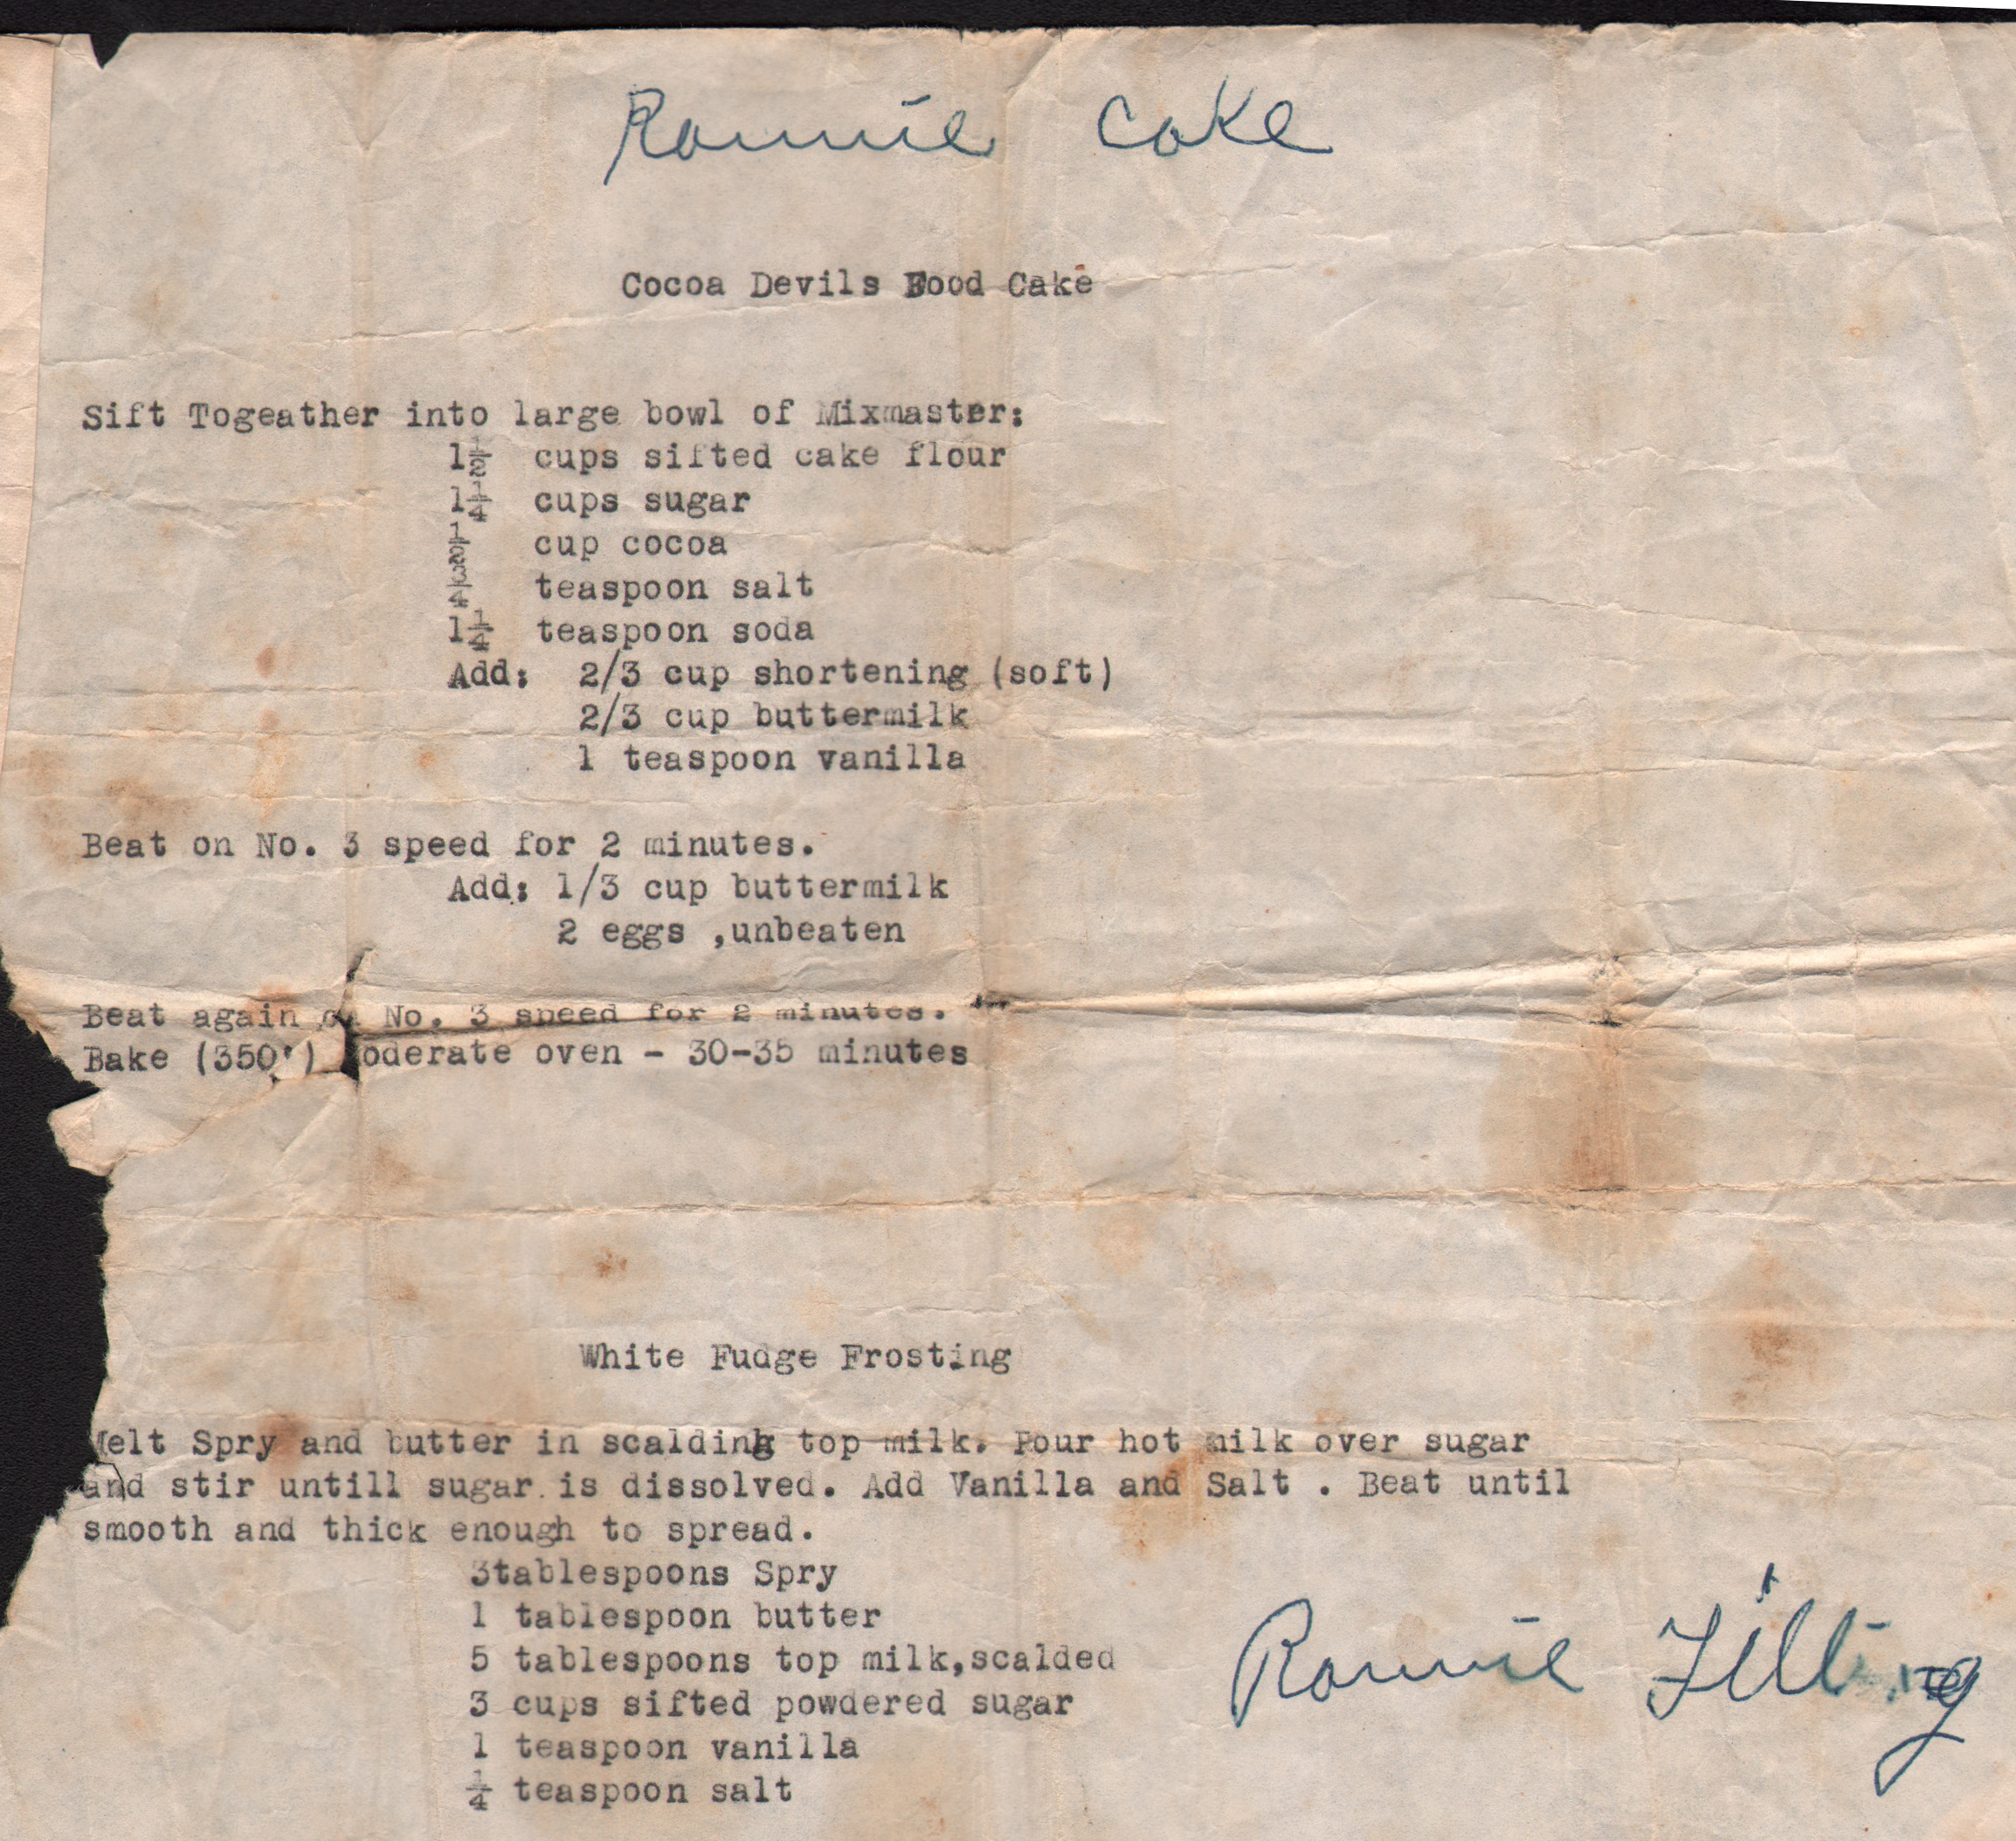 Ronnie Cake
Cocoa Devils Food Cake
Sift Togeather into large bowl of Mixmaster:
1½ cups sifted cake flour
1¼ cups sugar
½ cup cocoa
¾ teaspoon salt
1¼ teaspoon soda
Add: 2/3 cup shortening (soft)
2/3 cup buttermilk
1 teaspoon vanilla
Beat on No. 3 speed for 2 minutes.
Add: 1/3 cup buttermilk
2 eggs ,unbeaten
Beat again on No. 3 speed for 2 minutes.
Bake (350') oderate oven - 30-35 minutes
White Fudge Frosting
Melt Spry and butter in scalding top milk. Pour hot milk over sugar
and stir untill sugar is dissolved. Add Vanilla and Salt . Beat until
smooth and thick enough to spread.
3tablespoons Spry
1 tablespoon butter
5 tablespoons top milk,scalded
3 cups sifted powdered sugar
1 teaspoon vanilla
¼ teaspoon salt
Ronnie Filling